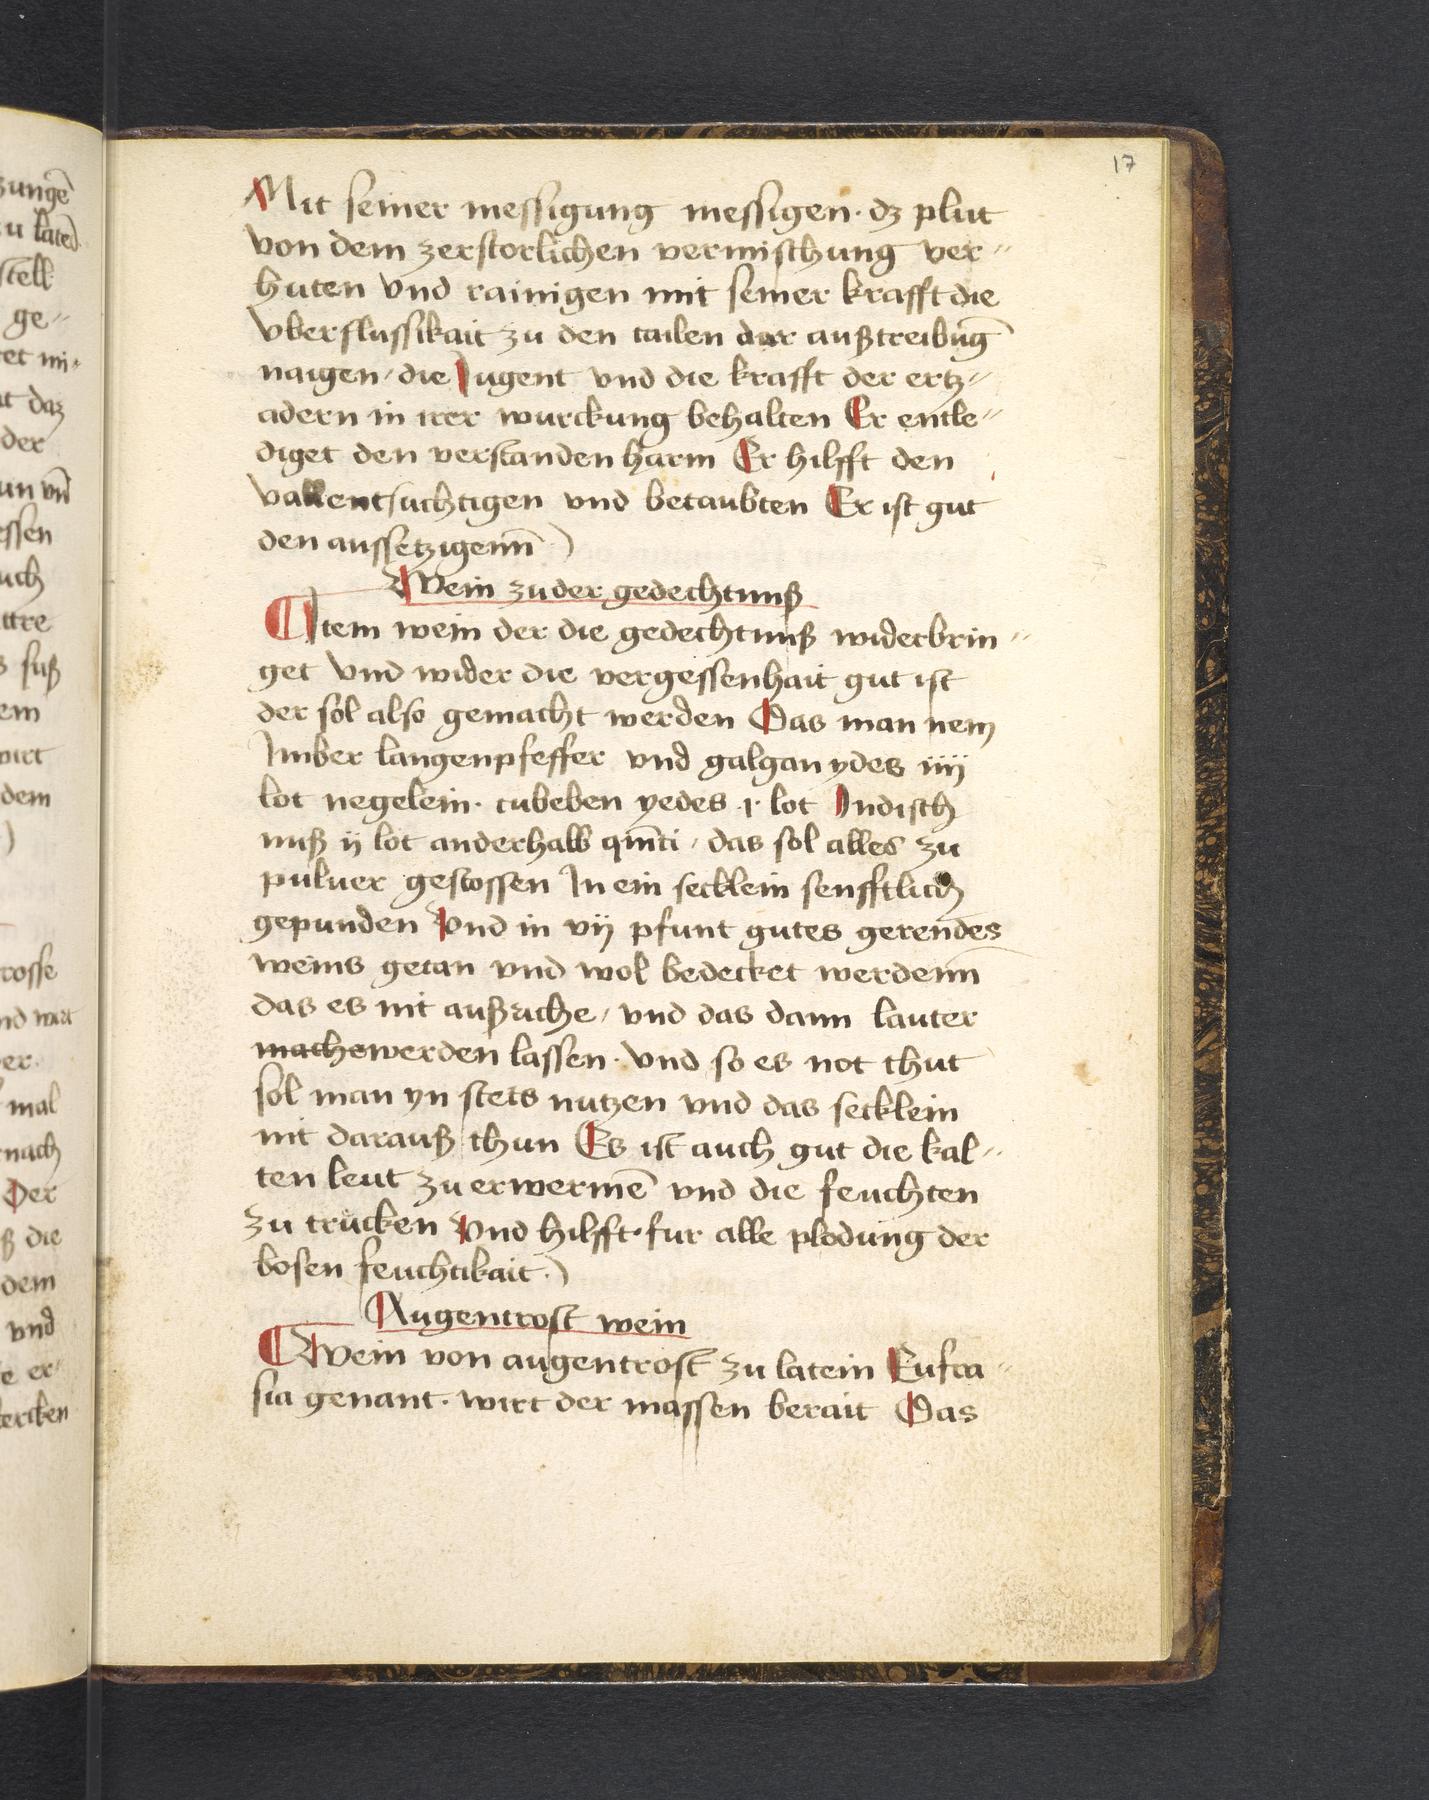 17
Mit seiner messigung messigen · dz plut
von dem zerstorlichen vermischung ver=
huten vnd rainigen mit seiner krafft die
vberflussikait zu den tailen der außtreibūg
naigen / die Jugent vnd die krafft der ertz=
adern in irer wurckung behalten Er entle=
diget den verstanden harm Er hilfft den
vallentsuchtigen vnd betaubten Er ist gut
den aussetzigenn̄ ·)
Wein zu der gedechtnuß
Item wein der die gedechtnuß widerbrin=
get vnd wider die vergessenhait gut ist
der sol also gemacht werden Das man nem
Jmber langenpfeffer vnd galgan ydes iiij
lot negelein · cubeben yedes · j · lot Jndisch
nuß ij lot anderhalb qūiti / das sol alles zu
puluer gestossen Jn ein secklein sensftlich
gepunden Vnd in vij pfunt gutes gerendes
weins getan vnd wol bedecket werdenn̄
das es nit außriche / vnd das dann lauter
mache werden lassen · Vnd so es not thut
sol man yn stets nutzen vnd das secklein
nit darauß thun Es ist auch gut die kal=
ten leut zu erwermē vnd die feuchten
zu trucken Vnd hilfft · fur alle plodung der
bosen feuchtikait ·)
Augentrost wein
Wein von augentrost zu latein Eufra=
sia genant · wirt der massen berait Das